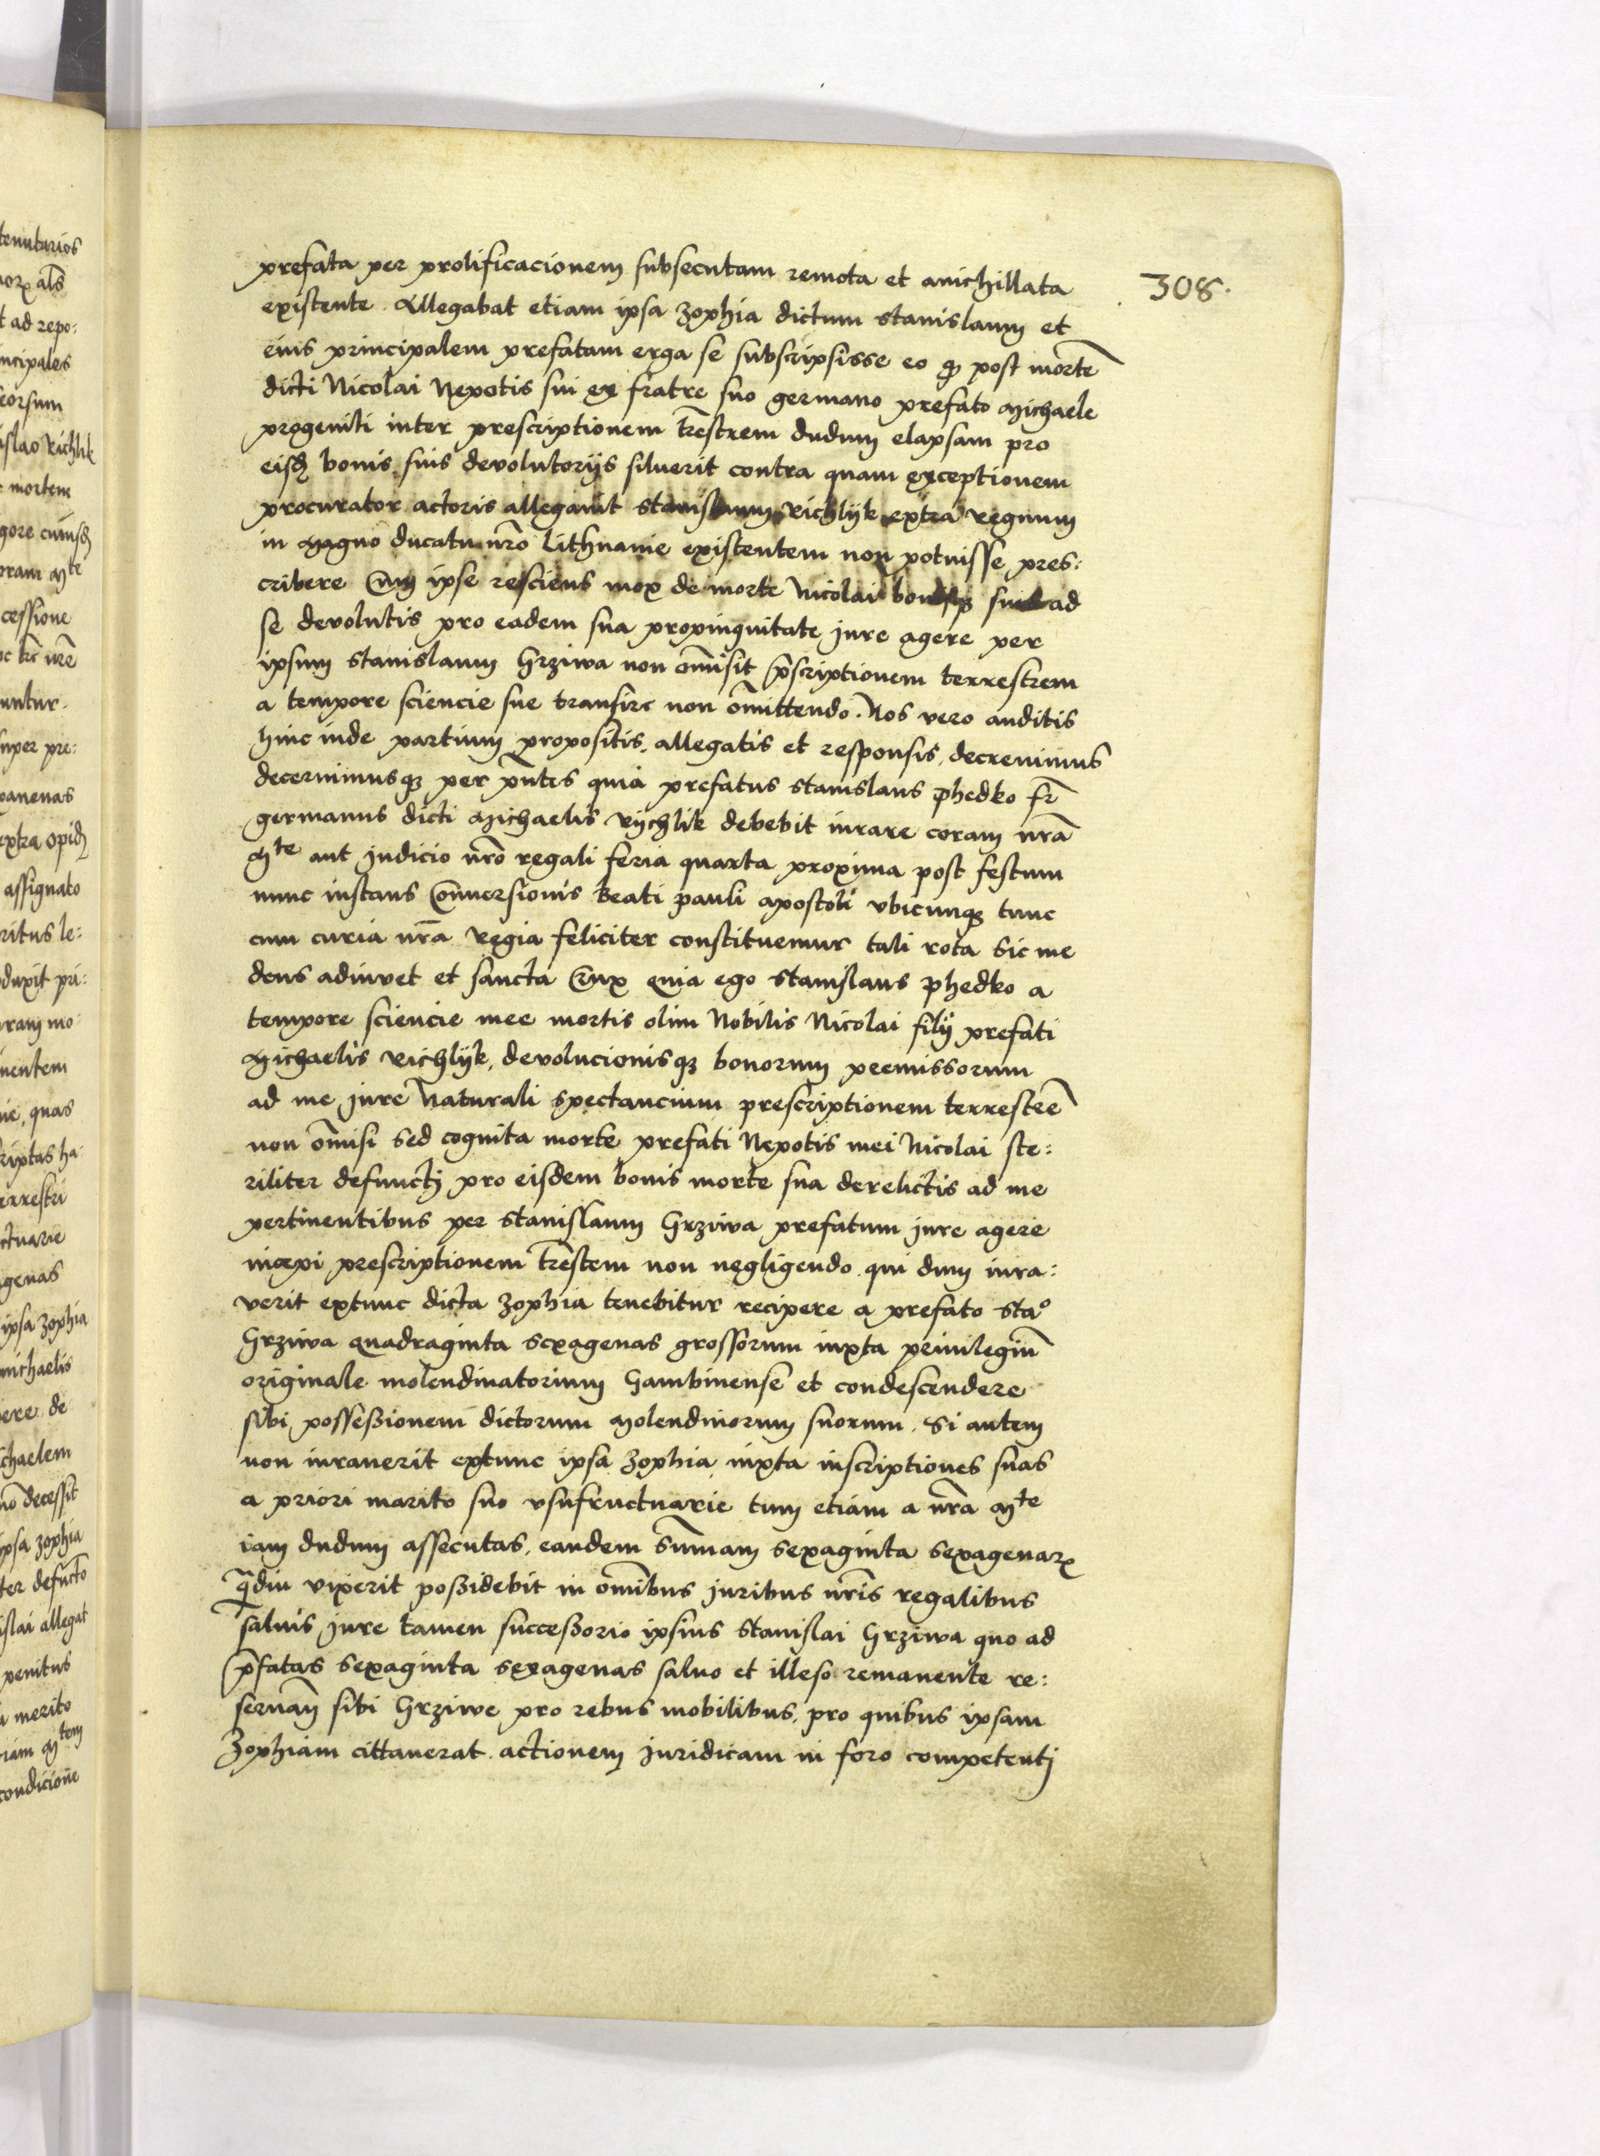 308.
prefata per prolificacionem subsecutam remota et anichillata
existente. Allegabat etiam ipsa Zophia dictum Stanislaum et
eius principalem prefatam erga se subscripsisse eo qz post mortē
dicti Nicolai Nepotis sui ex fratre suo germano prefato Michaele
progeniti inter prescriptionem tr̄estrem dudum elapsam pro
eisd bonis suis devolutorijs siluerit contra quam exceptionem
procurator actoris allegavit Stanislaum Richlijk extra regnum
in Magno ducatu nr̄o Lithuanie existentem non potuisse pres:
cribere Cum ipse resciens mox de morte Nicolai bonisqz suis ad
se devolutis pro eadem sua propinquitate jure agere per
ipsum Stanislaum Grziwa non om̄isit p̄scriptionem terrestrem
a tempore sciencie sue transire non om̄ittendo. Nos vero auditis
hinc inde partium propositis, allegatis et responsis, decrevimus
decernimusqz per p̄ntes quia prefatus Stanislaus phedko fr̄
germanus dicti Michaelis Rychlik debebit iurare coram nr̄a
Mte aut Judicio nr̄o regali feria quarta proxima post festum
nunc instans Conversionis beati pauli apostoli ubicunqz tunc
cum curia nr̄a Regia feliciter constituemur tali rota Sic me
deus adiuvet et sancta Crux quia ego Stanislaus phedko a
tempore sciencie mee mortis olim Nobilis Nicolai filij prefati
Michaelis Richlijk, devolucionisqz bonorum premissorum
ad me jure Naturali spectancium prescriptionem terrestrē
non om̄isi sed cognita morte prefati Nepotis mei Nicolai ste:
riliter defuncti pro eisdem bonis morte sua derelictis ad me
pertinentibus per Stanislaum Grziwa prefatum jure agere
incepi prescriptionem tr̄estem non negligendo. qui dum iura:
verit extunc dicta Zophia tenebitur recipere a prefato Stao
Grziwa quadraginta sexagenas grossorum iuxta privilegiū
originale molendinatorium Gambinensē et condescendere
sibi possessionem dictorum Molendinorum suorum. Si autem
non iuraverit extunc ipsa Zophia iuxta inscriptiones suas
a priori marito suo usufructuarie tum etiam a nr̄a Mte
iam dudum assecutas, eandem Sum̄am sexaginta sexagenarz
q̄diu vixerit possidebit in om̄ibus juribus nr̄is regalibus
salvis jure tamen successorio ipsius Stanislai Grziwa quo ad
p̄fatas sexaginta sexagenas salvo et illeso remanente re:
servan̄ sibi Grziwe pro rebus mobilibus, pro quibus ipsam
Zophiam cittaverat. actionem juridicam in foro competentj